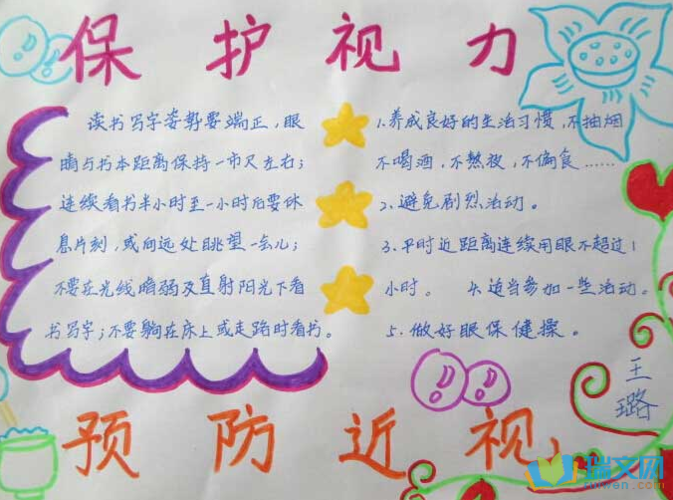 保护视力
读书写字姿势要端正,眼
睛与书本距离保持一市尺左右;
连续看书半小时至一小时后要休
息片刻,或向远处眺望一会儿;
不要在光线暗弱及直射阳光下看
书写字;不要躺在床上或走路时看书。
1.养成良好的生活习惯,不抽烟
不喝酒,不熬夜,不偏食……
2.避免剧烈活动。
3.平时近距离连续用眼不超过1
小时。 4.适当参加一些活动。
5.做好眼保健操。
王
璐
预防近视
瑞文网